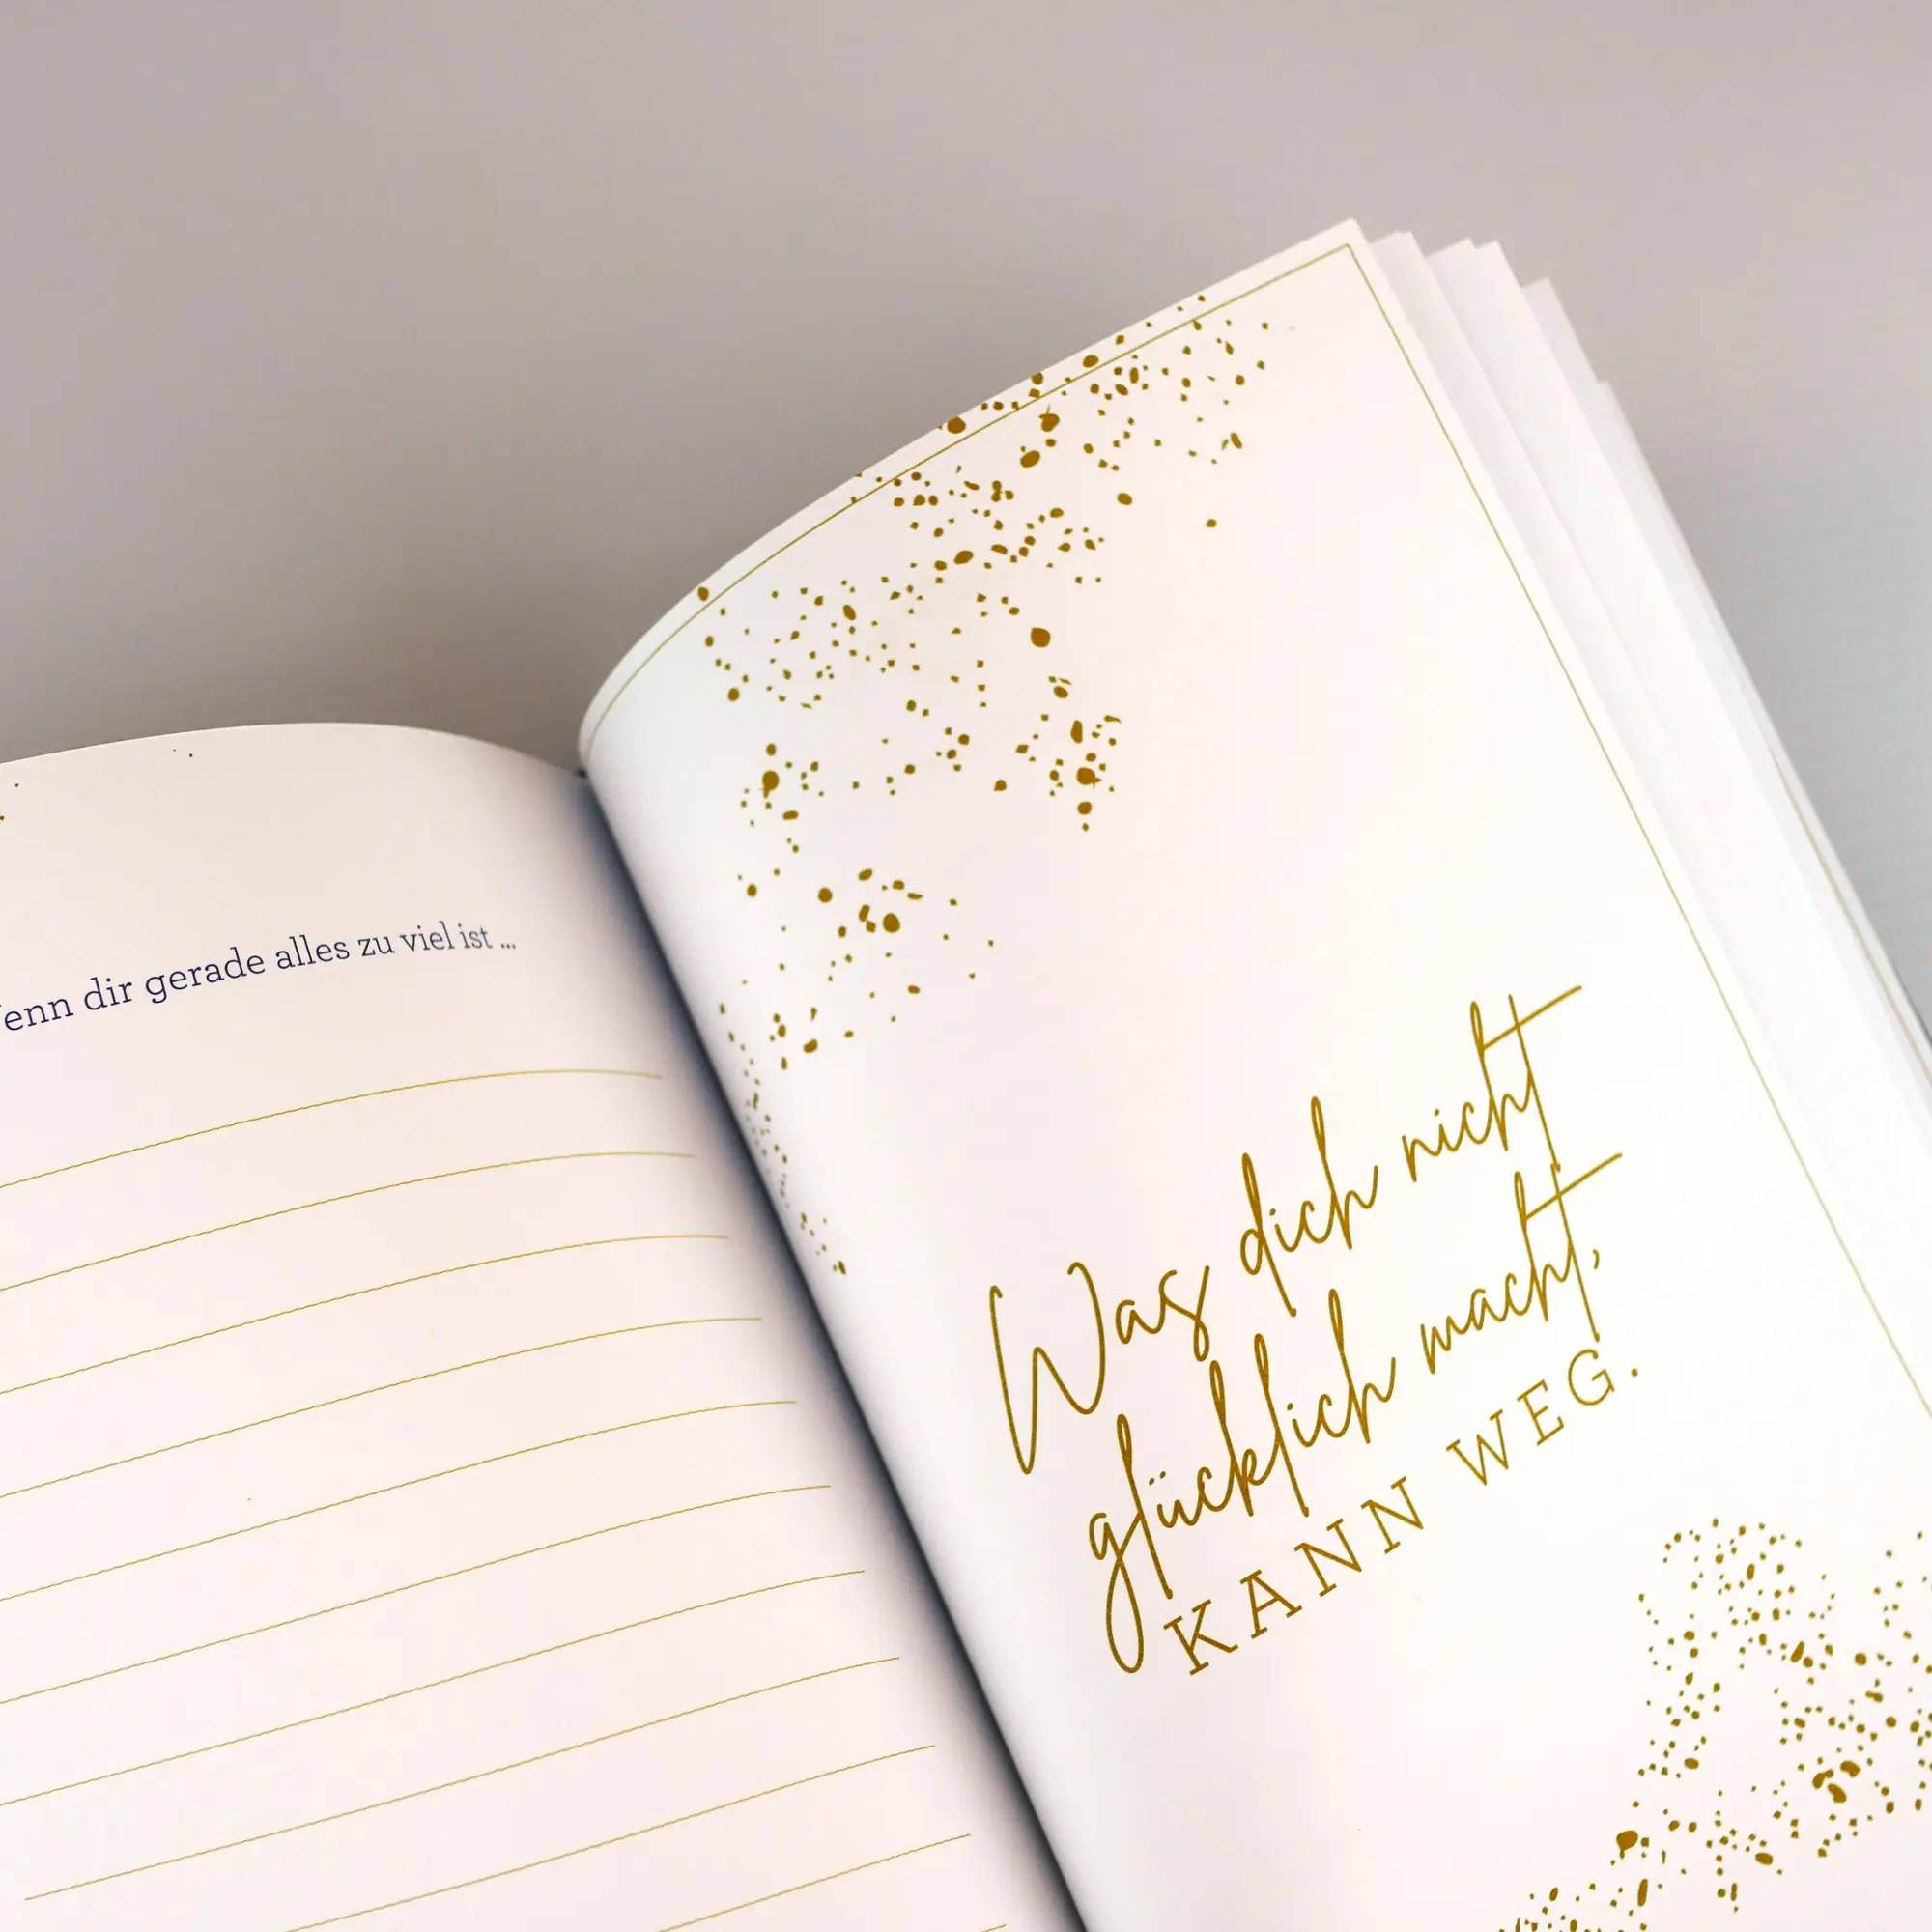 Wenn dir gerade alles zu viel ist ...
Was dich nicht
glücklich macht,
KANN WEG.